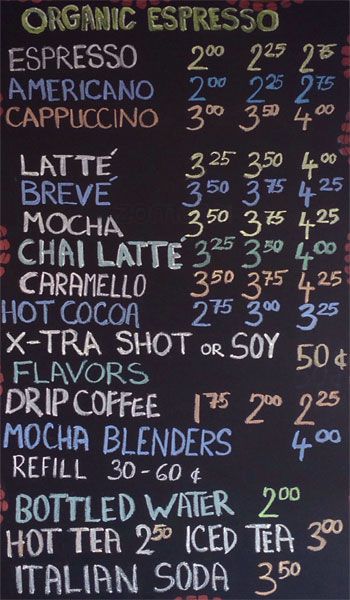 ORGANIC ESPRESSO
ESPRESSO 2.00 2.25 2.75
AMERICANO 2.00 2.25 2.75
CAPPUCCINO 3.00 3.50 4.00
LATTÉ 3.25 3.50 4.00
BREVÉ 3.50 3.75 4.25
MOCHA 3.50 3.75 4.25
CHAI LATTÉ 3.25 3.50 4.00
CARAMELLO 3.50 3.75 4.25
HOT COCOA 2.75 3.00 3.25
X-TRA SHOT OR SOY 50¢
FLAVORS
DRIP COFFEE 1.75 2.00 2.25
MOCHA BLENDERS 4.00
REFILL 30-60¢
BOTTLED WATER 2.00
HOT TEA 2.50 ICED TEA 3.00
ITALIAN SODA 3.50